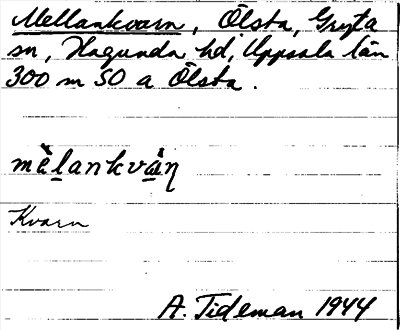 Mellankvarn, Ölsta, Gryta
sn, Hagunda hd, Uppsala län
300 m SO a Ölsta.
mèlankvàɳ
Kvarn
A. Tideman 1944